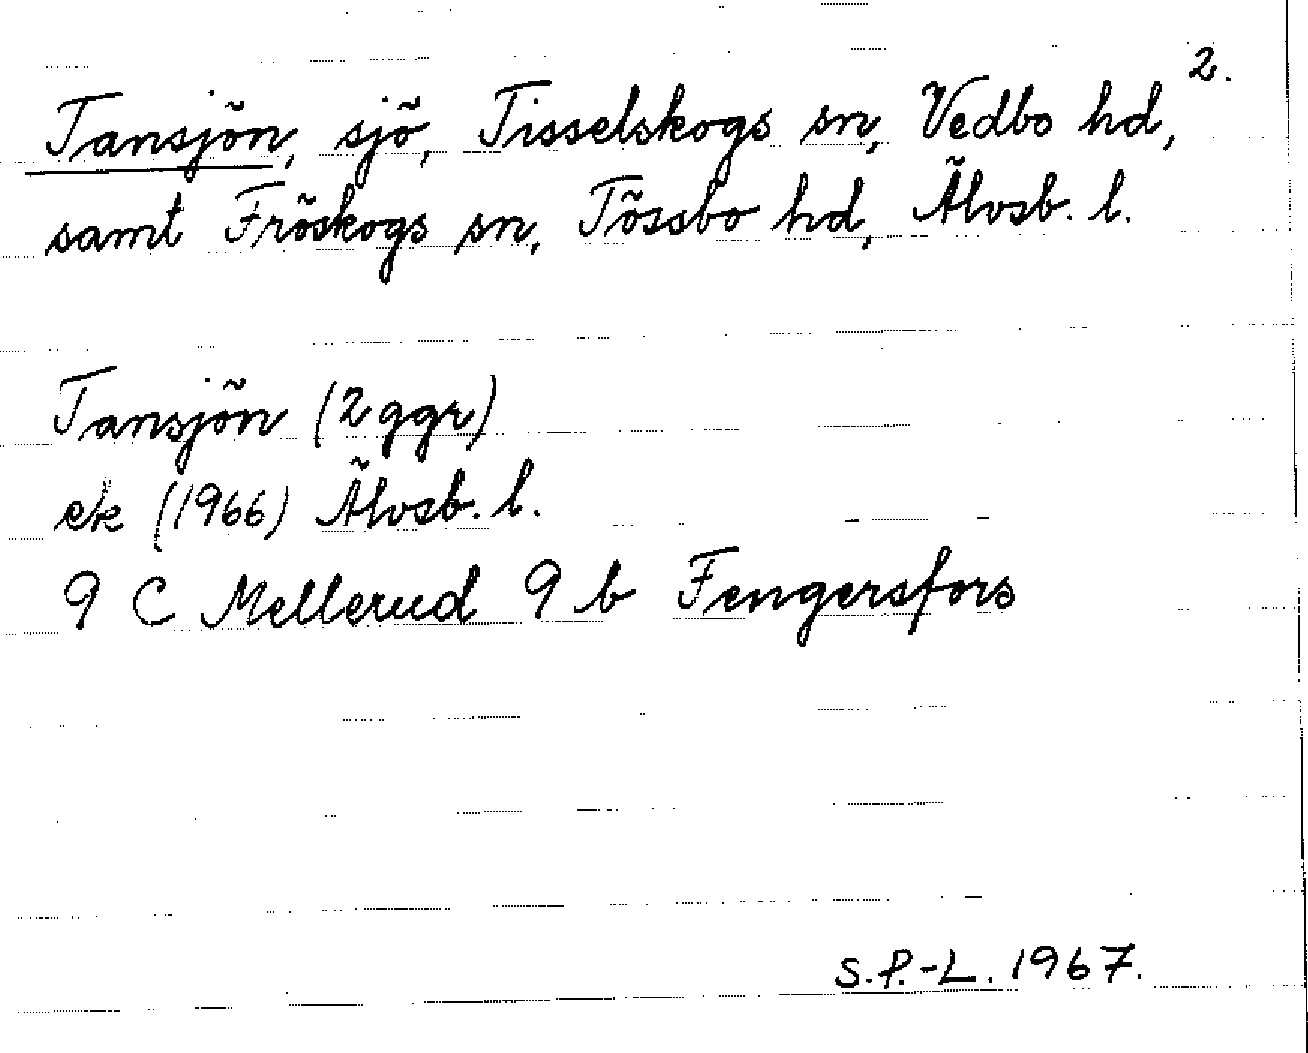 2.
Tansjön, sjö, Tisselskogs sn, Vedbo hd,
samt Fröskogs sn, Tössbo hd, Älvsb. l.
Tansjön (2 ggr)
ek (1966) Älvsb. l.
9 C Mellerud 9 b Fengersfors
S.P.-L. 1967.